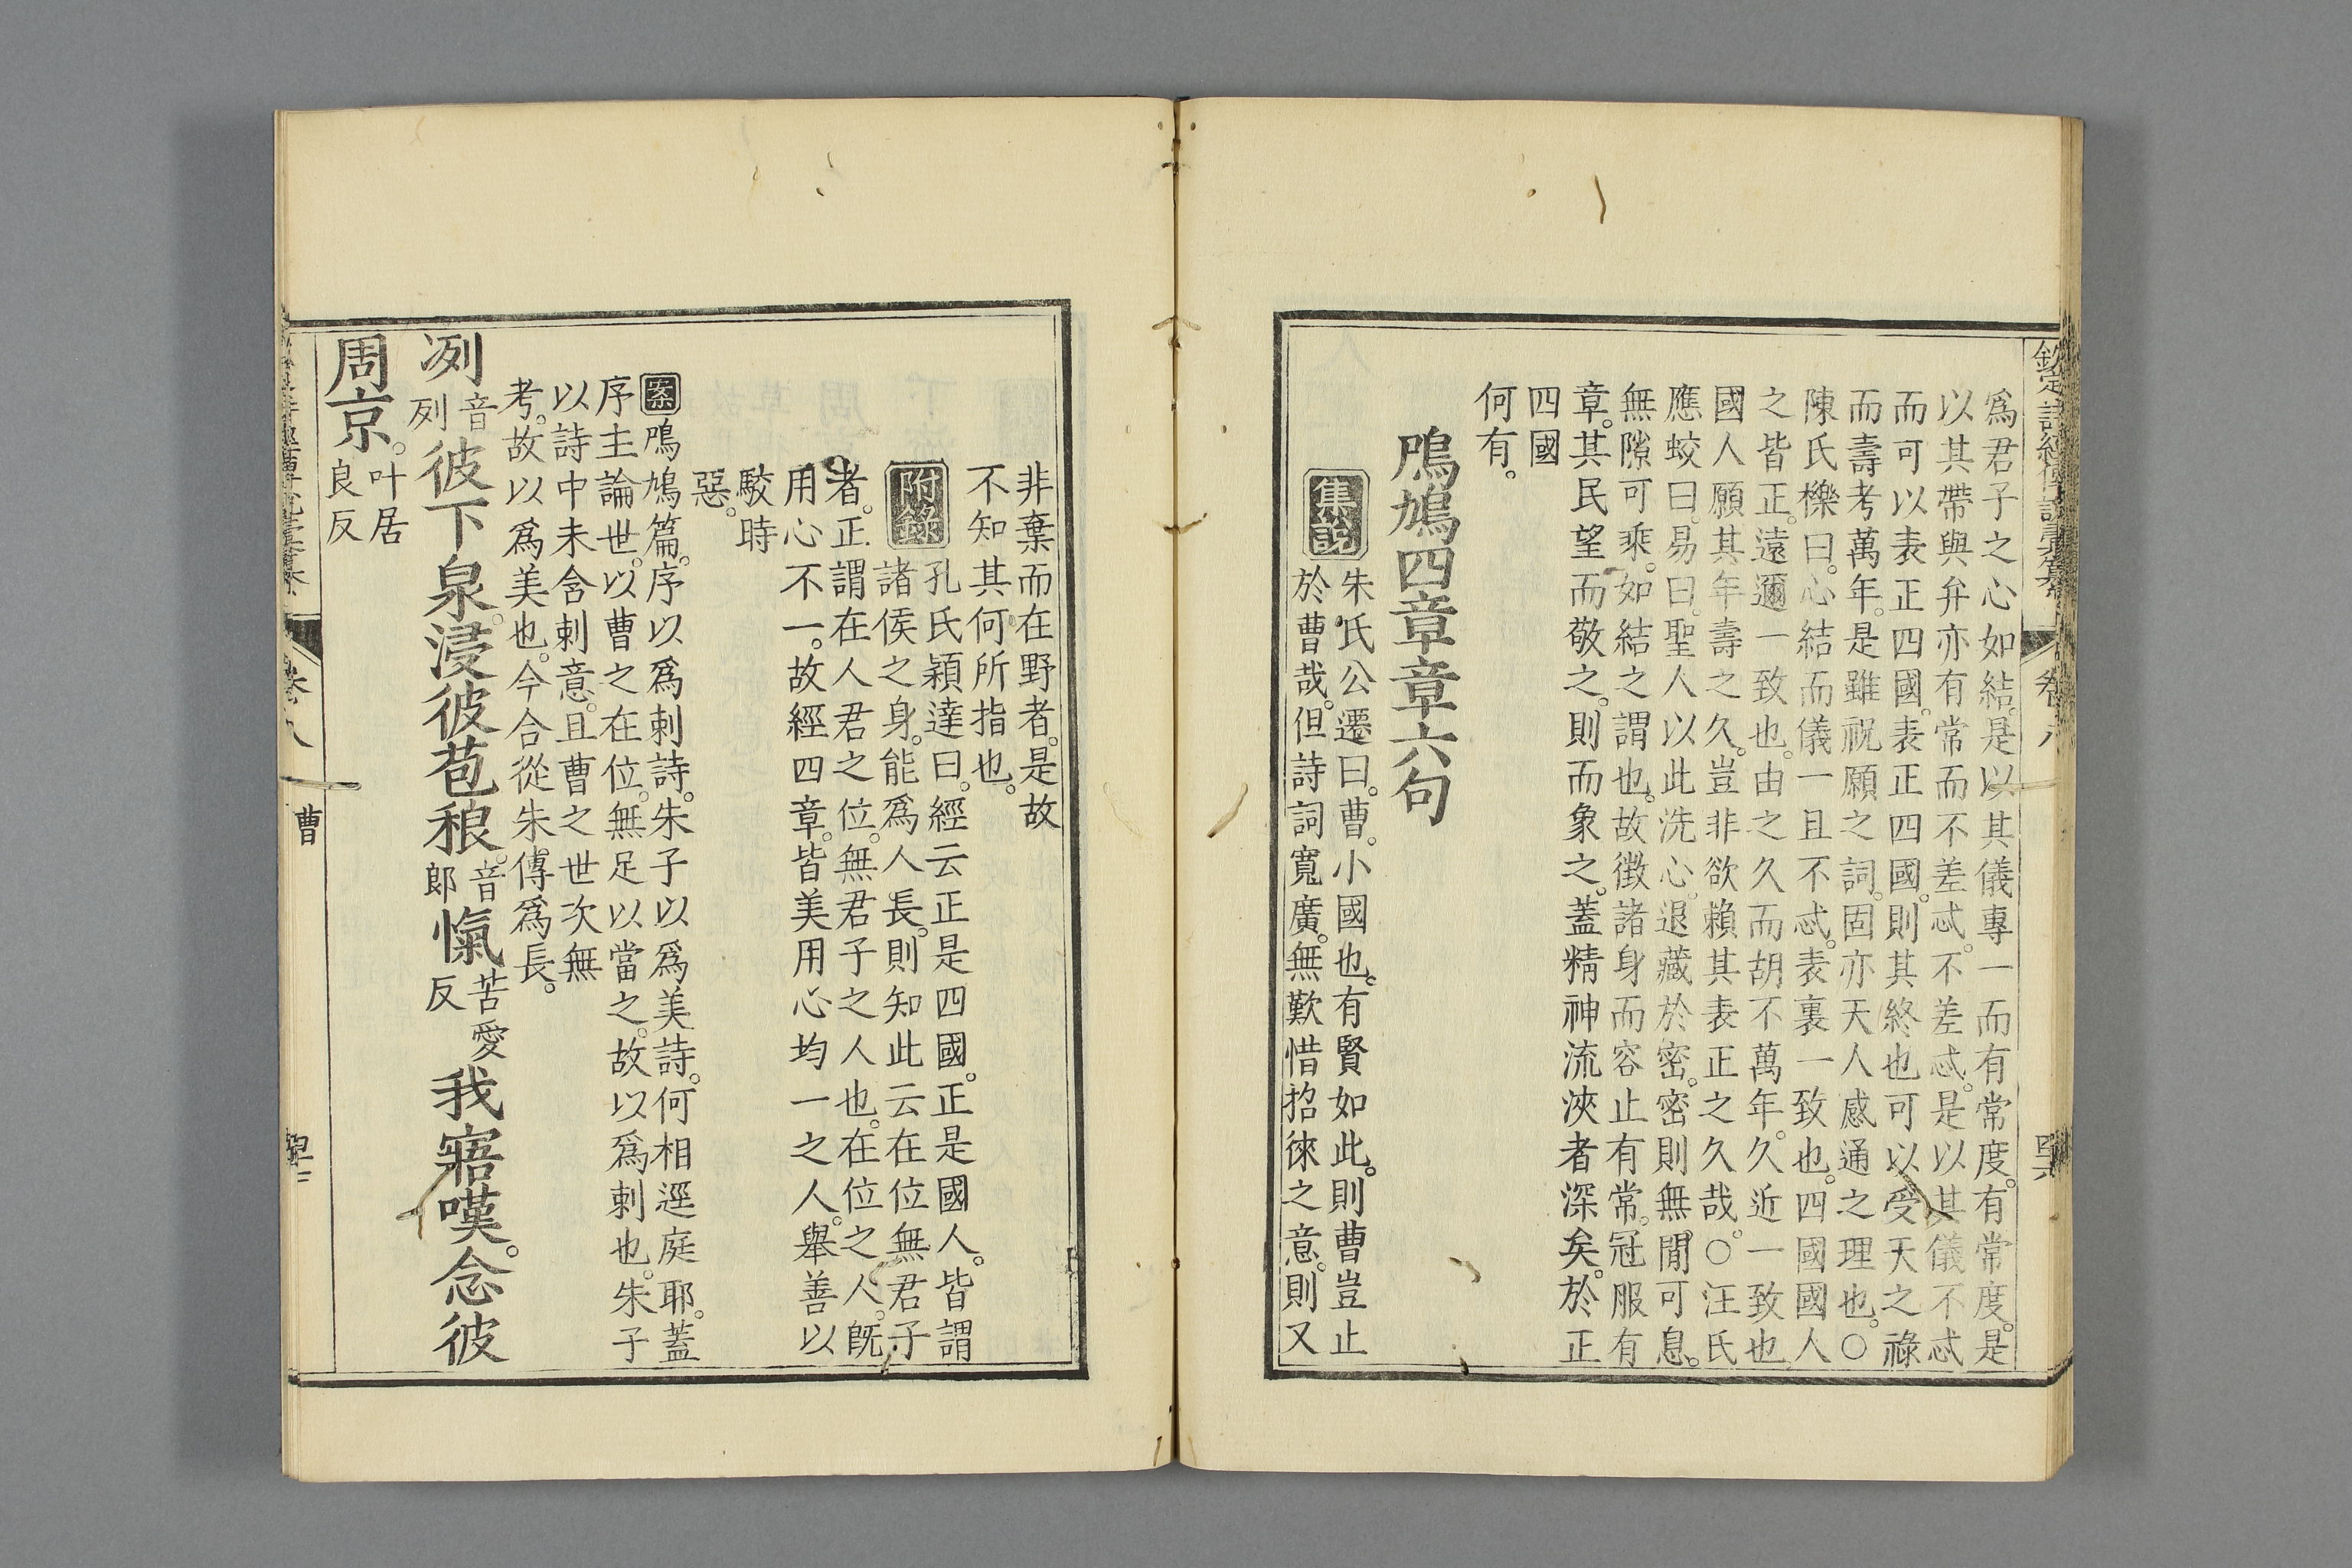 欽定詩經傳說彙纂 卷八
爲君子之心如結。是以其儀專一而有常度。有常度。是
以其帶與弁亦有常而不差忒。不差忒。是以其儀不忒
而可以表正四國。表正四國。則其終也可以受天之祿
而壽考萬年。是雖祝願之詞。固亦天人感通之理也。○
陳氏櫟曰。心結而儀一且不忒。表裏一致也。四國國人
之皆正。遠邇一致也。由之久而胡不萬年。久近一致也
國人願其年壽之久。豈非欲賴其表正之久哉。○汪氏
應蛟曰。易曰。聖人以此洗心。退藏於密。密則無閒可息。
無隙可乘。如結之謂也。故徵諸身而容止有常。冠服有
章。其民望而敬之。則而象之。蓋精神流浹者深矣。於正
四國
何有。
鳲鳩四章章六句
集說 朱氏公遷曰。曹。小國也。有賢如此。則曹豈止
於曹哉。但詩詞寬廣。無歎惜招徠之意。則又
非棄而在野者。是故
不知其何所指也。
附錄 孔氏穎達曰。經云正是四國。正是國人。皆謂
諸侯之身。能爲人長。則知此云在位無君子
者。正謂在人君之位。無君子之人也。在位之人。旣
用心不一。故經四章。皆美用心均一之人。舉善以
駮時
惡。
案 鳲鳩篇。序以爲刺詩。朱子以爲美詩。何相逕庭耶。蓋
序主論世。以曹之在位。無足以當之。故以爲刺也。朱子
以詩中未含刺意。且曹之世次無
考。故以爲美也。今合從朱傳爲長。
冽音列彼下泉。浸彼苞稂音郎。愾苦愛反我寤嘆。念彼
周京。叶居良反
卷八 曹